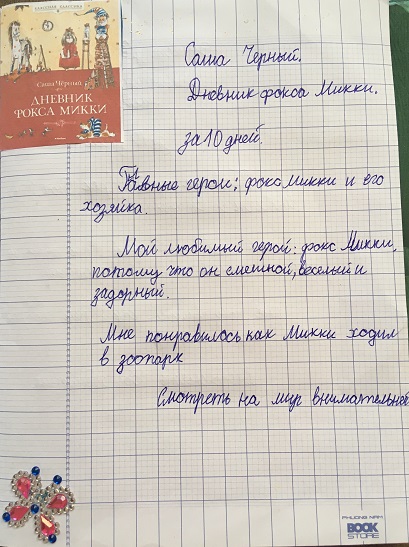 КЛАССНАЯ КЛАССИКА
Саша Чёрный
ДНЕВНИК
ФОКСА МИККИ
Саша Черный.
Дневник фокса Микки.
за 10 дней.
Главные герои: фокс Микки и его
хозяйка.
Мой любимый герой: фокс Микки,
потому что он смешной, веселый и
задорный.
Мне понравилось как Микки ходил
в зоопарк
Смотреть на мир внимательней
PHUONG NAM
BOOK
STORE